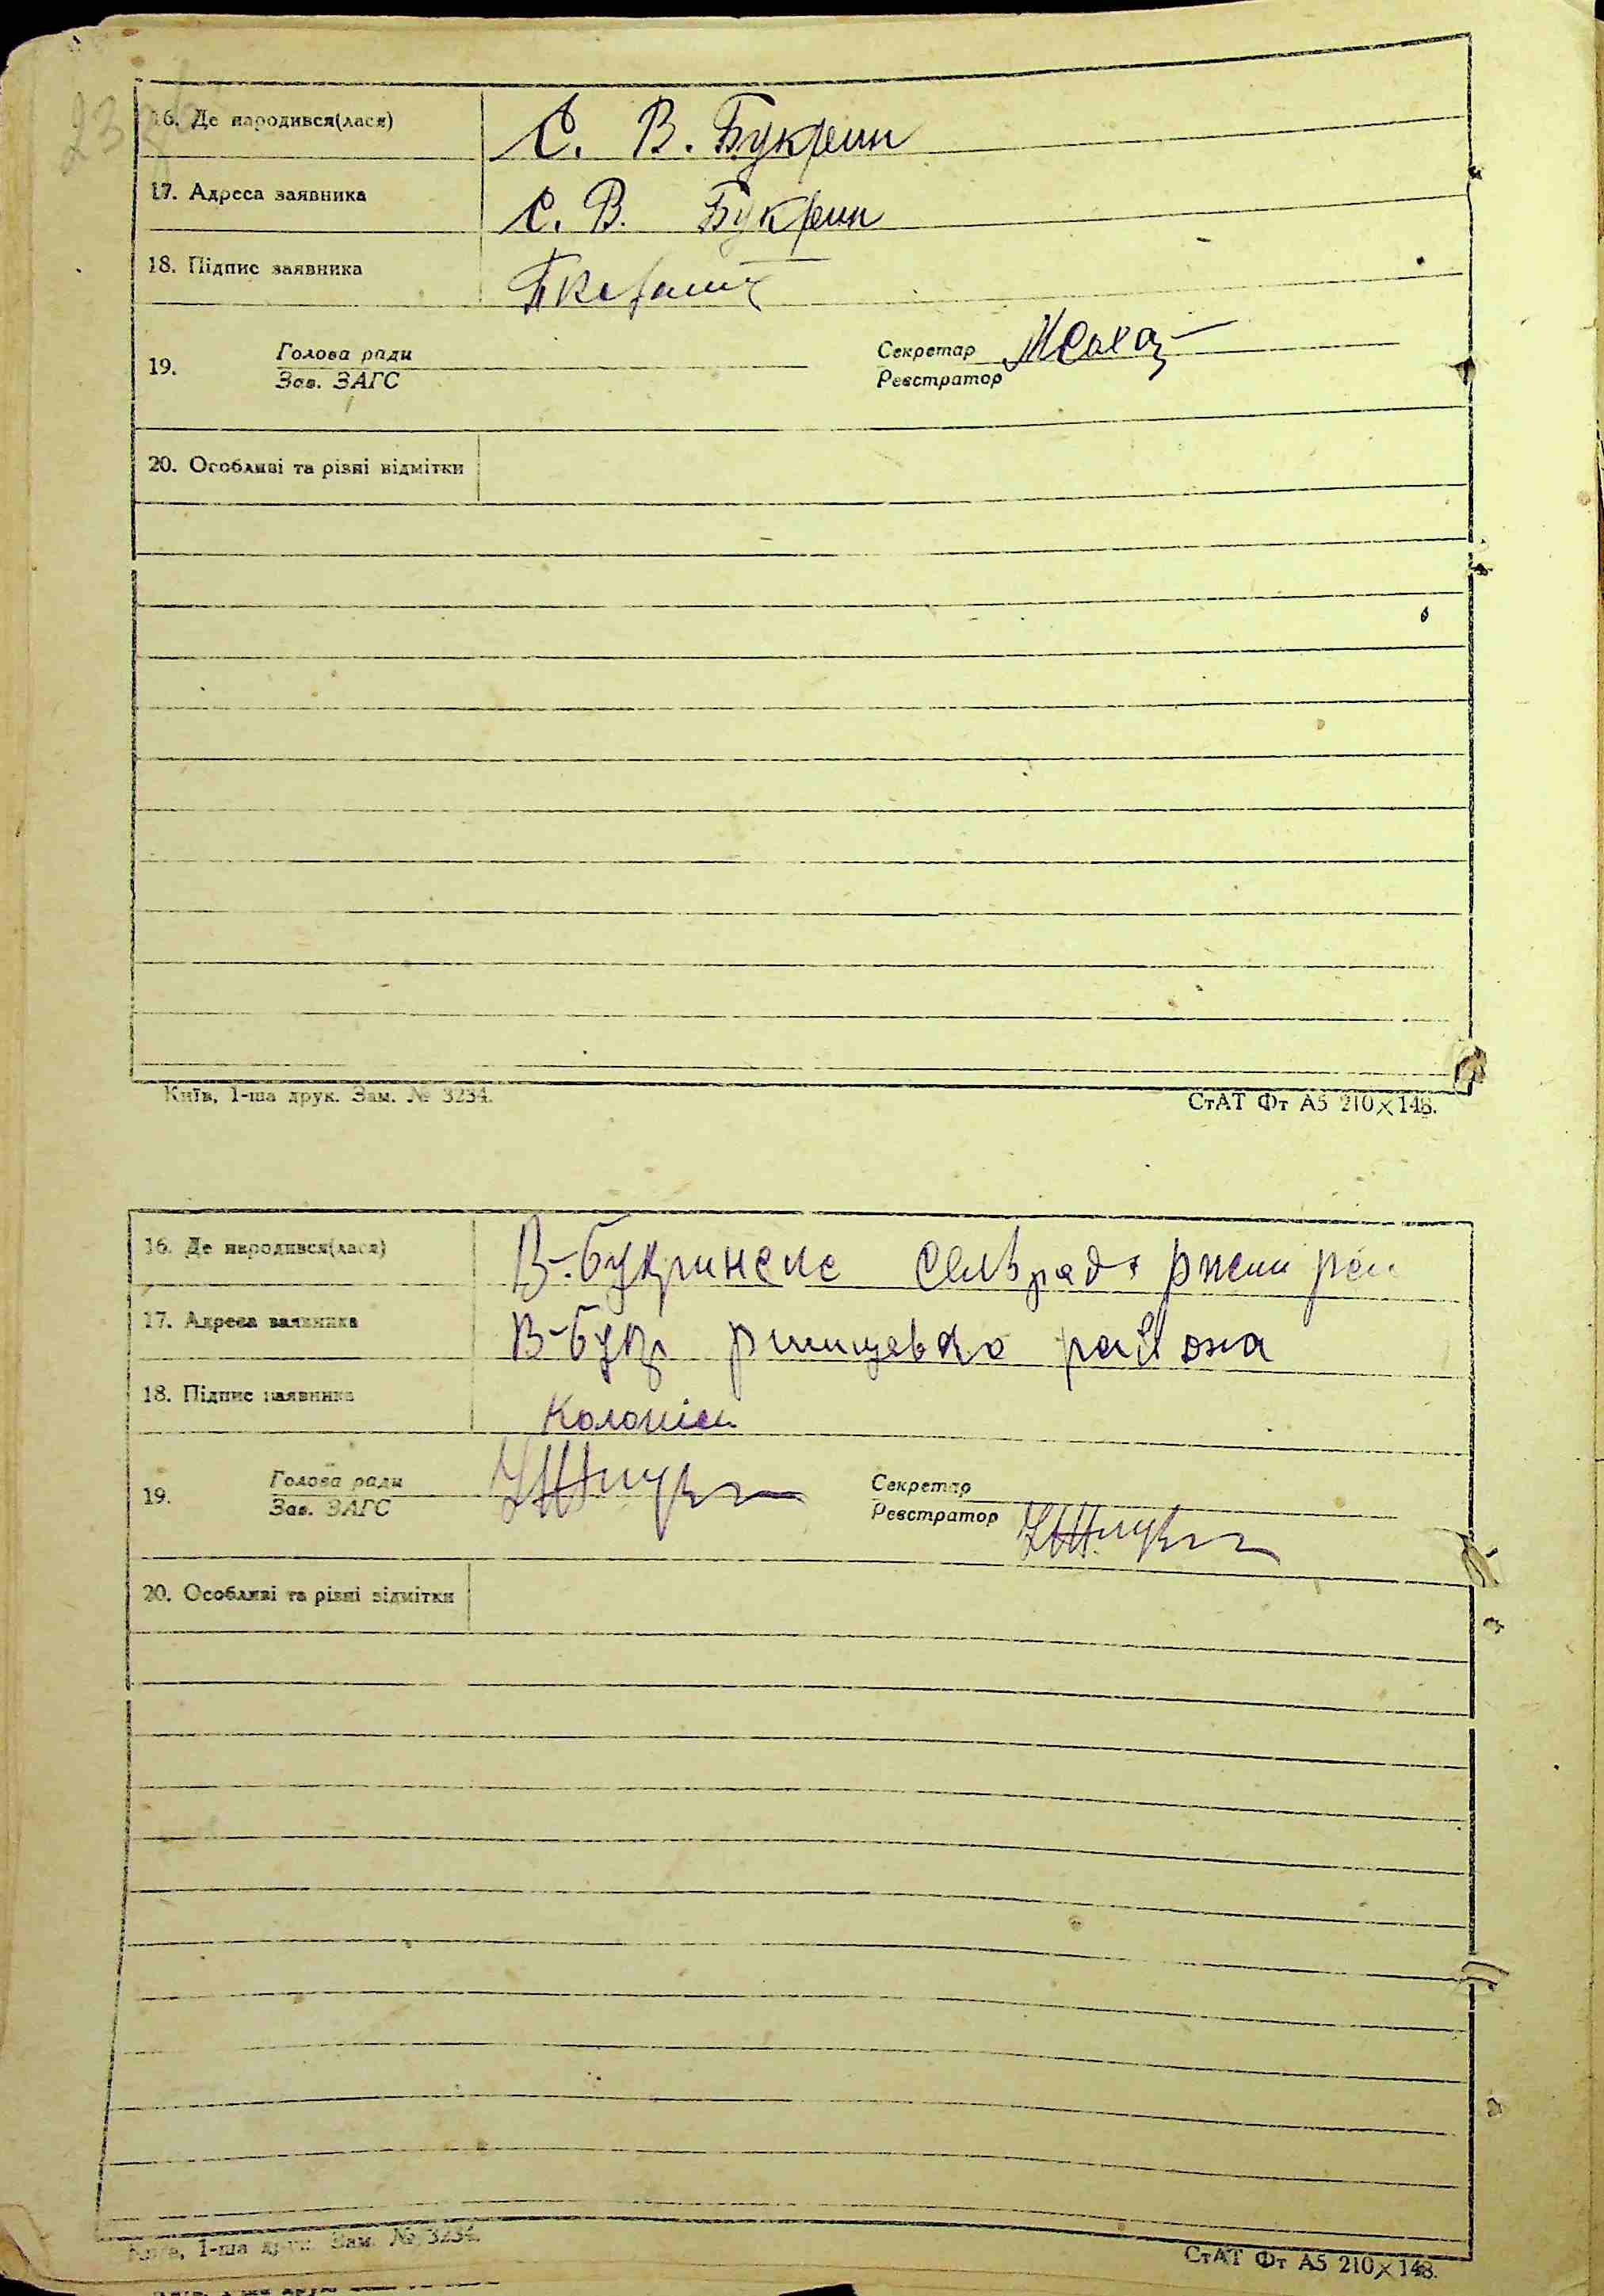 16. Де народився(лася) С. В. Букрин
17. Адреса заявника С. В. Букрин
18. Підпис заявника
19. Голова ради Секретар
Зав. ЗАГС Реєстратор
20. Особливі та різні відмітки
Київ, 1-ша друк. Зам. № 3234. СтАТ Фт А5 210×148.
16. Де народився(лася) В-букринске
17. Адреса заявника В-бук района
18. Підпис заявника Коломієц
19. Голова ради Секретар
Зав. ЗАГС Реєстратор
20. Особливі та різні відмітки
Київ, 1-ша друк. Зам. № 3234. СтАТ Фт А5 210×148.